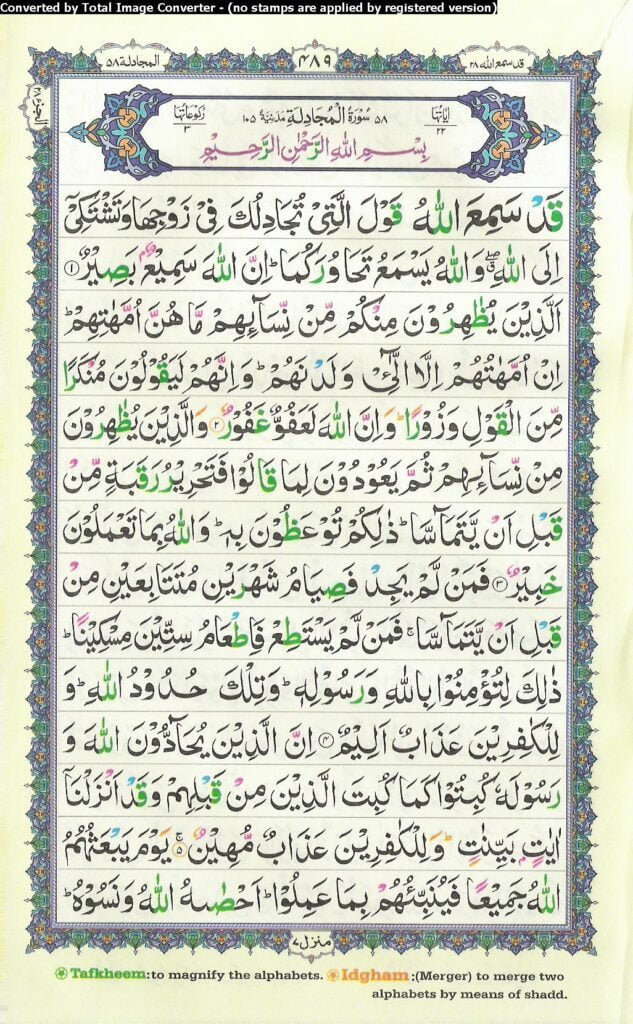 Converted by Total Image Converter - (no stamps are applied by registered version)
قد سمع الله ٢٨
٤٨٩
المجادلة ٥٨
اٰيَاتُهَا ٢٢
٥٨ سُوْرَةُ الْمُجَادِلَةِ مَدَنِيَّةٌ ١٠٥
رُكُوْعَاتُهَا ٣
بِسْمِ اللّٰهِ الرَّحْمٰنِ الرَّحِيْمِ
قَدْ سَمِعَ اللّٰهُ قَوْلَ الَّتِيْ تُجَادِلُكَ فِيْ زَوْجِهَا وَتَشْتَكِيْٓ
اِلَى اللّٰهِ ۖۗ وَاللّٰهُ يَسْمَعُ تَحَاوُرَكُمَا ؕ اِنَّ اللّٰهَ سَمِيْعٌۢ بَصِيْرٌ ١
اَلَّذِيْنَ يُظٰهِرُوْنَ مِنْكُمْ مِّنْ نِّسَآىِٕهِمْ مَّا هُنَّ اُمَّهٰتِهِمْ ؕ
اِنْ اُمَّهٰتُهُمْ اِلَّا الّٰٓـِٔيْ وَلَدْنَهُمْ ؕ وَاِنَّهُمْ لَيَقُوْلُوْنَ مُنْكَرًا
مِّنَ الْقَوْلِ وَزُوْرًا ؕ وَاِنَّ اللّٰهَ لَعَفُوٌّ غَفُوْرٌ ٢ وَالَّذِيْنَ يُظٰهِرُوْنَ
مِنْ نِّسَآىِٕهِمْ ثُمَّ يَعُوْدُوْنَ لِمَا قَالُوْا فَتَحْرِيْرُ رَقَبَةٍ مِّنْ
قَبْلِ اَنْ يَّتَمَآسَّا ؕ ذٰلِكُمْ تُوْعَظُوْنَ بِهٖ ؕ وَاللّٰهُ بِمَا تَعْمَلُوْنَ
خَبِيْرٌ ٣ فَمَنْ لَّمْ يَجِدْ فَصِيَامُ شَهْرَيْنِ مُتَتَابِعَيْنِ مِنْ
قَبْلِ اَنْ يَّتَمَآسَّا ۚ فَمَنْ لَّمْ يَسْتَطِعْ فَاِطْعَامُ سِتِّيْنَ مِسْكِيْنًا ؕ
ذٰلِكَ لِتُؤْمِنُوْا بِاللّٰهِ وَرَسُوْلِهٖ ؕ وَتِلْكَ حُدُوْدُ اللّٰهِ ؕ وَ
لِلْكٰفِرِيْنَ عَذَابٌ اَلِيْمٌ ٤ اِنَّ الَّذِيْنَ يُحَآدُّوْنَ اللّٰهَ وَ
رَسُوْلَهٗ كُبِتُوْا كَمَا كُبِتَ الَّذِيْنَ مِنْ قَبْلِهِمْ وَقَدْ اَنْزَلْنَآ
اٰيٰتٍۢ بَيِّنٰتٍ ؕ وَلِلْكٰفِرِيْنَ عَذَابٌ مُّهِيْنٌ ۚ ٥ يَوْمَ يَبْعَثُهُمُ
اللّٰهُ جَمِيْعًا فَيُنَبِّئُهُمْ بِمَا عَمِلُوْا ؕ اَحْصٰىهُ اللّٰهُ وَنَسُوْهُ ؕ
منزل ٧
الجزء ٢٨
Tafkheem:to magnify the alphabets. Idgham :(Merger) to merge two
alphabets by means of shadd.